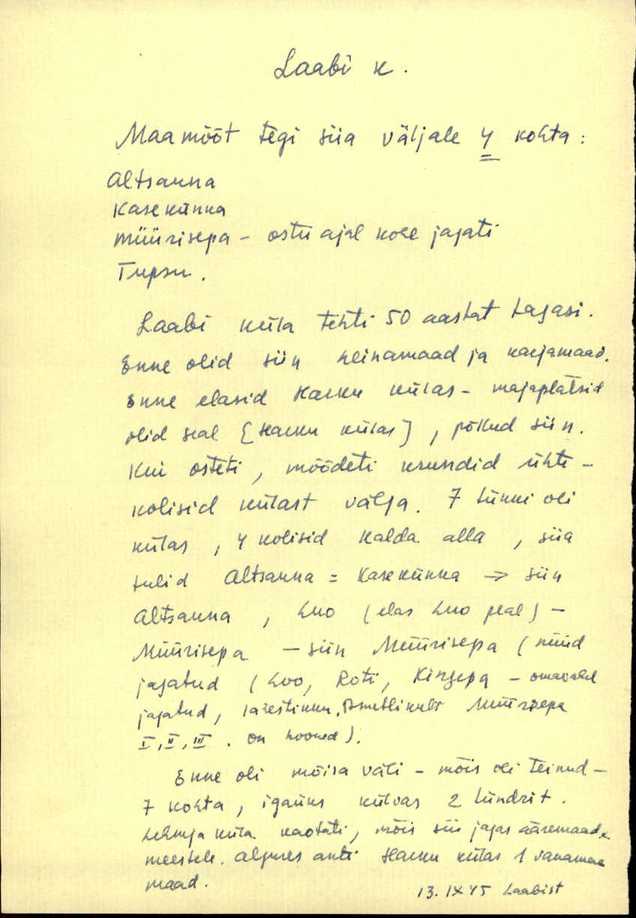 Laabi k.
Maamõõt tegi siia väljale 4 kohta:
Altsauna
Kasekünka
Müürisepa – ostu ajal kohe jagati
Tupsu.
Laabi küla tehti 50 aastat tagasi.
Enne olid siin heinamaad ja karjamaad.
Enne elasid Harku külas – majaplatsid
olid seal [Harku külas], põllud siin.
Kui osteti, mõõdeti krundid ühte –
kolisid külast välja. 7 tünni oli
külas, 4 kolisid Kalda alla, siia
tulid Altsauna = Kasekünka → siin
Altsauna, Luo (elas Luo peal) –
Müürisepa – siin Müürisepa (nüüd
jagatud (Loo, Roti, Kingsepa – omavahel
jagatud, Ametlikult Müürisepa
I, II, III. on hooned).
Enne oli mõisa väli – mõis oli teinud –
7 kohta, igaüks külvas 2 tündrit.
küla kaotati, mõis siis jagas ääremaad
meestele. Alguses anti Harku külas 1 vanamaa
maad.
13. IX 45 Laabist